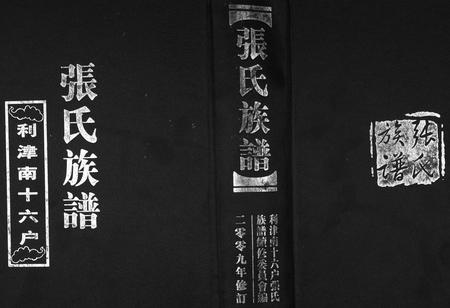 張氏族譜
利津南十六户
張氏族譜
利津南十六户張氏
族譜續修委員會編
二零零九年修訂
張氏
族譜